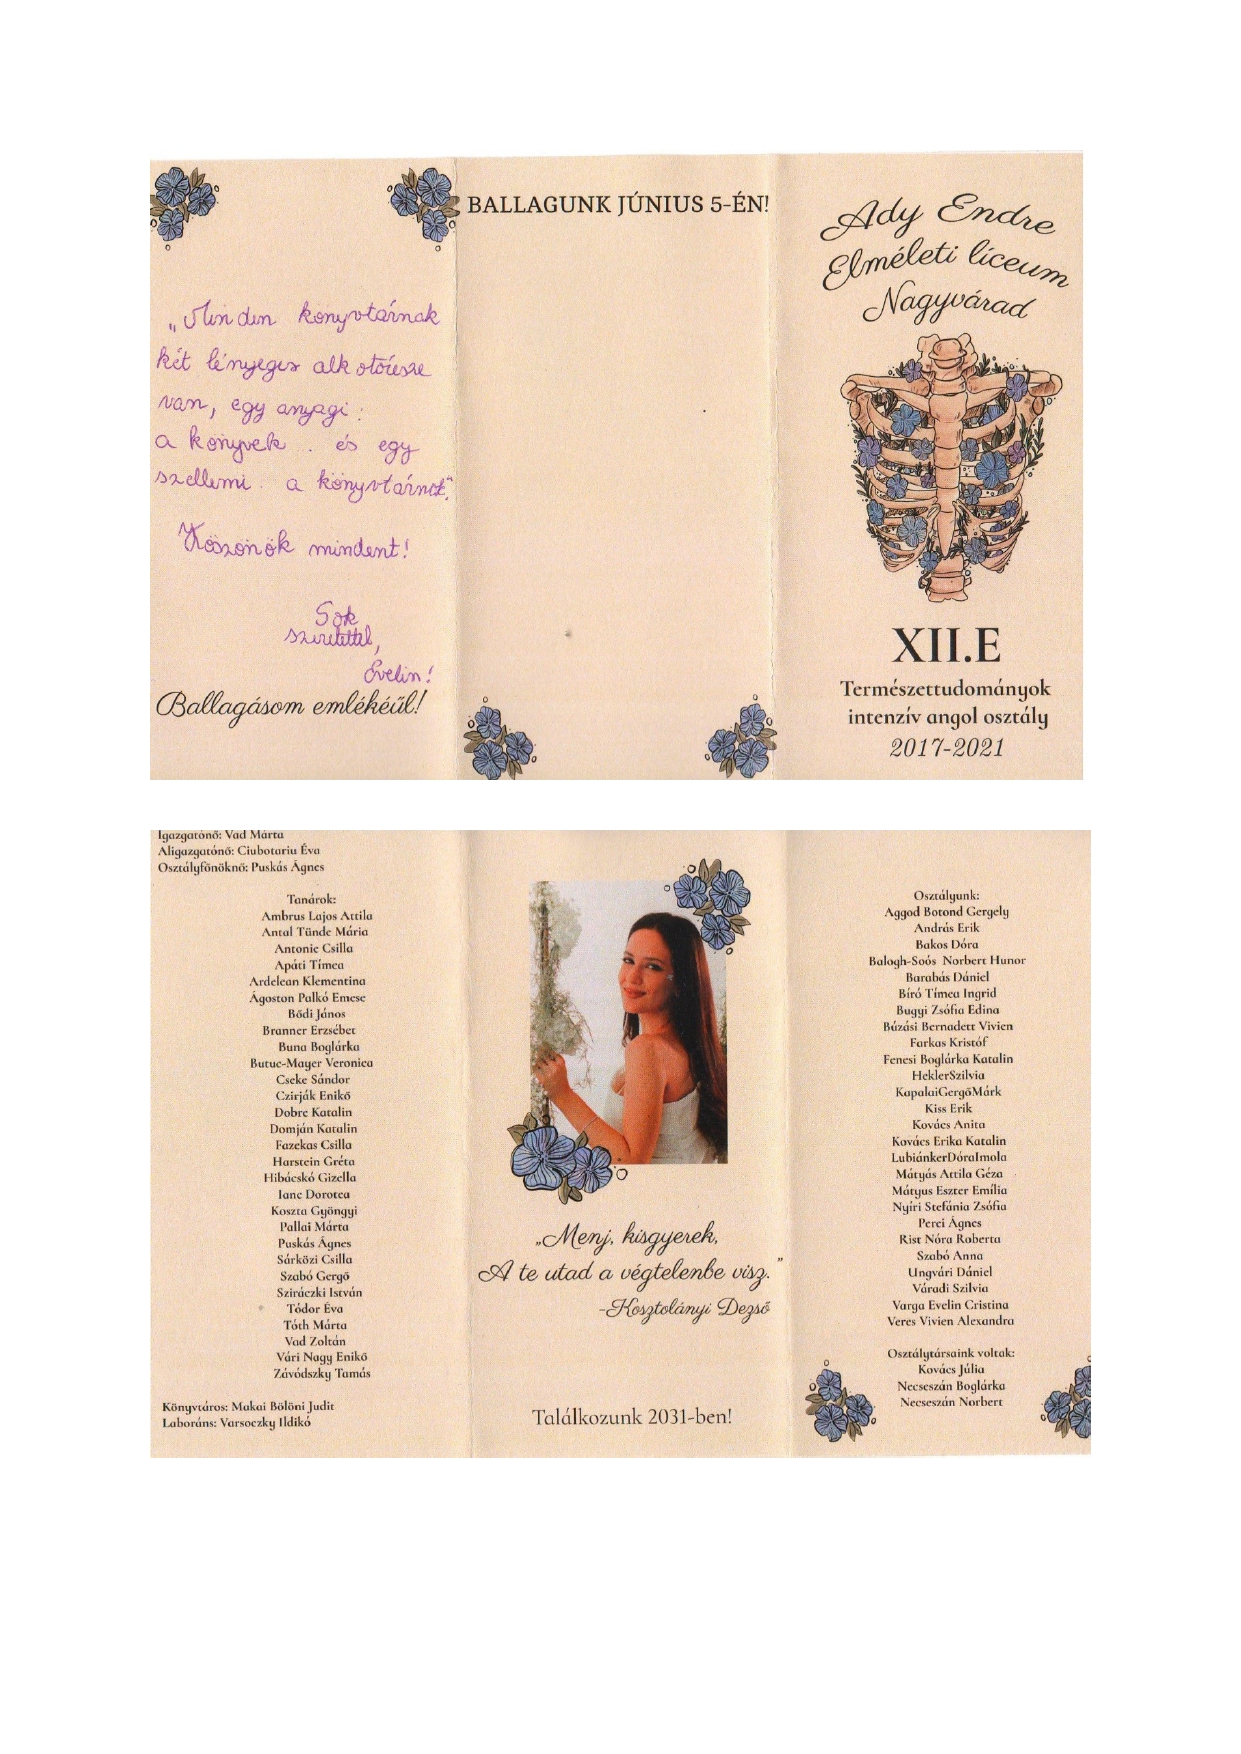 „Minden könyvtárnak
két lényeges alkotórésze
van, egy anyagi:
a könyvek. és egy
szellemi. a könyvtárnok."
Köszönök mindent!
Sok
szeretettel,
Evelin!
Ballagásom emlékéül!
BALLAGUNK JÚNIUS 5-ÉN!
Ady Endre
Elméleti líceum
Nagyvárad
XII.E
Természettudományok
intenzív angol osztály
2017-2021
Igazgatónő: Vad Márta
Aligazgatónő: Ciubotariu Éva
Osztályfőnöknő: Puskás Ágnes
Tanárok:
Ambrus Lajos Attila
Antal Tünde Mária
Antonic Csilla
Apáti Tímea
Ardelean Klementina
Ágoston Palkó Emese
Bődi János
Branner Erzsébet
Buna Boglárka
Butuc-Mayer Veronica
Cseke Sándor
Czirják Enikő
Dobre Katalin
Domján Katalin
Fazekas Csilla
Harstein Gréta
Hibácskó Gizella
Iane Dorotea
Koszta Gyöngyi
Pallai Márta
Puskás Ágnes
Sárközi Csilla
Szabó Gergő
Sziráczki István
Tódor Éva
Tóth Márta
Vad Zoltán
Vári Nagy Enikő
Závódszky Tamás
Könyvtáros: Makai Bölöni Judit
Laboráns: Varsoczky Ildikó
„Menj, kisgyerek,
A te utad a végtelenbe visz.”
-Kosztolányi Dezső
Találkozunk 2031-ben!
Osztályunk:
Aggod Botond Gergely
András Erik
Bakos Dóra
Balogh-Soós Norbert Hunor
Barabás Dániel
Bíró Tímea Ingrid
Bugyi Zsófia Edina
Búzási Bernadett Vivien
Farkas Kristóf
Fenesi Boglárka Katalin
HeklerSzilvia
KapalaiGergőMárk
Kiss Erik
Kovács Anita
Kovács Erika Katalin
LubiánkerDóraImola
Mátyás Attila Géza
Mátyus Eszter Emília
Nyíri Stefánia Zsófia
Perei Ágnes
Rist Nóra Roberta
Szabó Anna
Ungvári Dániel
Váradi Szilvia
Varga Evelin Cristina
Veres Vivien Alexandra
Osztálytársaink voltak:
Kovács Júlia
Necseszán Boglárka
Necseszán Norbert